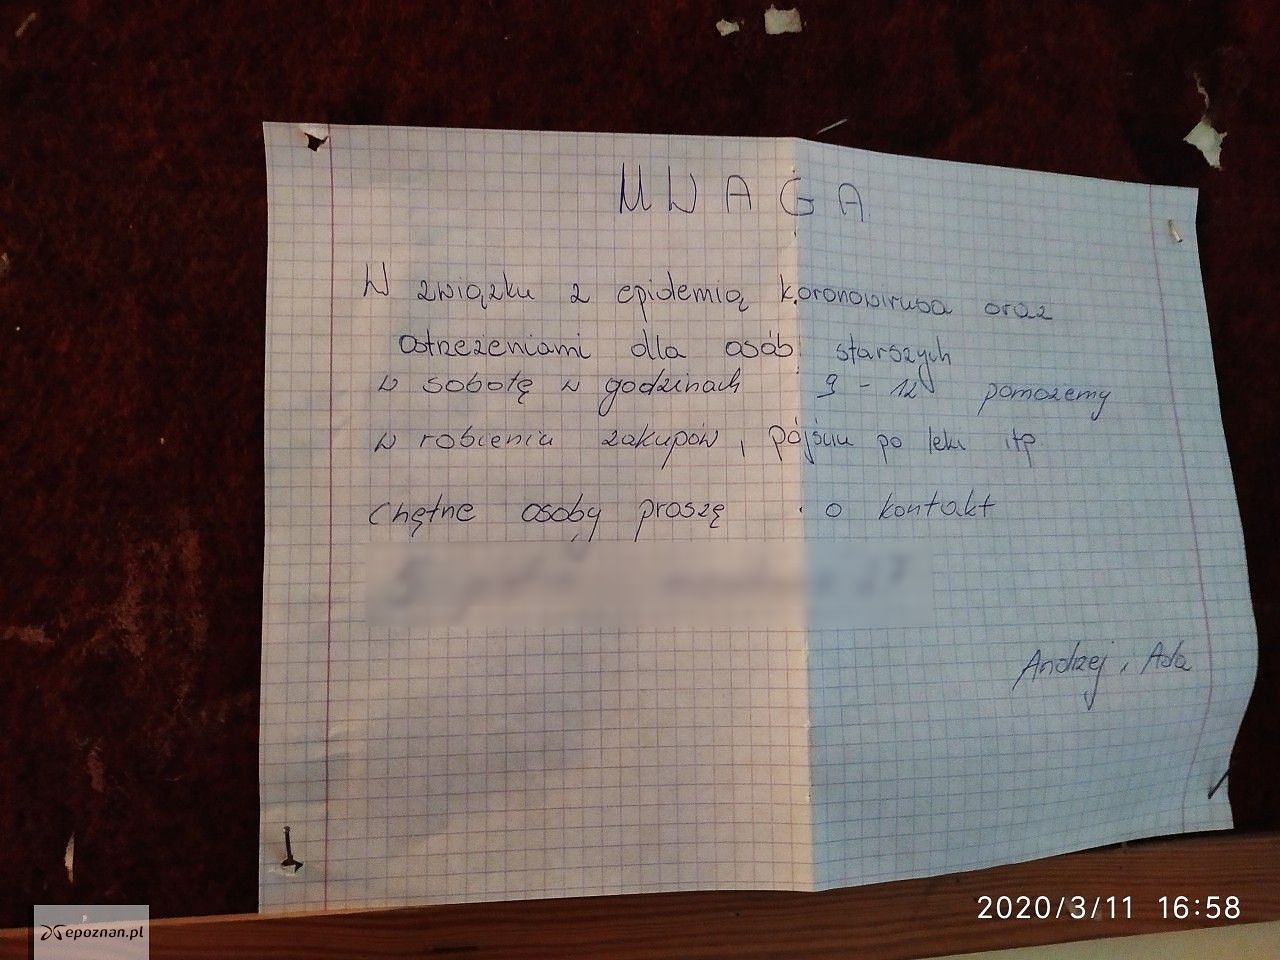 UWAGA
W związku z epidemią koronowirusa oraz
ostrzeżeniami dla osób starszych
w sobotę w godzinach 9 - 12 pomożemy
w robieniu zakupów, pójściu po leki itp
Chętne osoby proszę o kontakt
Andrzej, Ada
epoznan.pl
2020/3/11 16:58